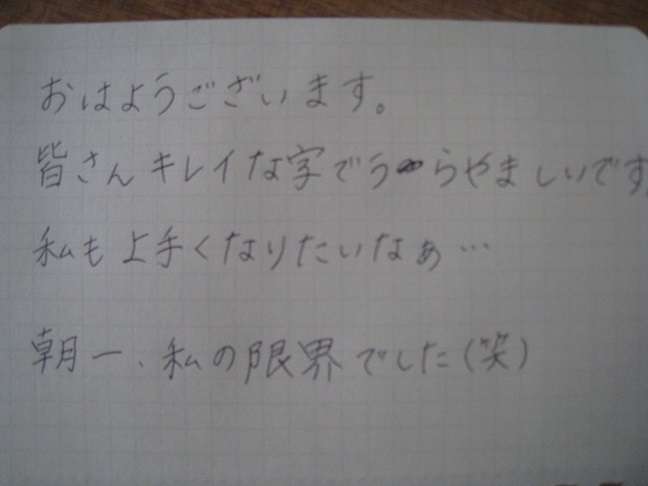 おはようございます。
皆さんキレイな字でうらやましいです
私も上手くなりたいなぁ…
朝一、私の限界でした(笑)